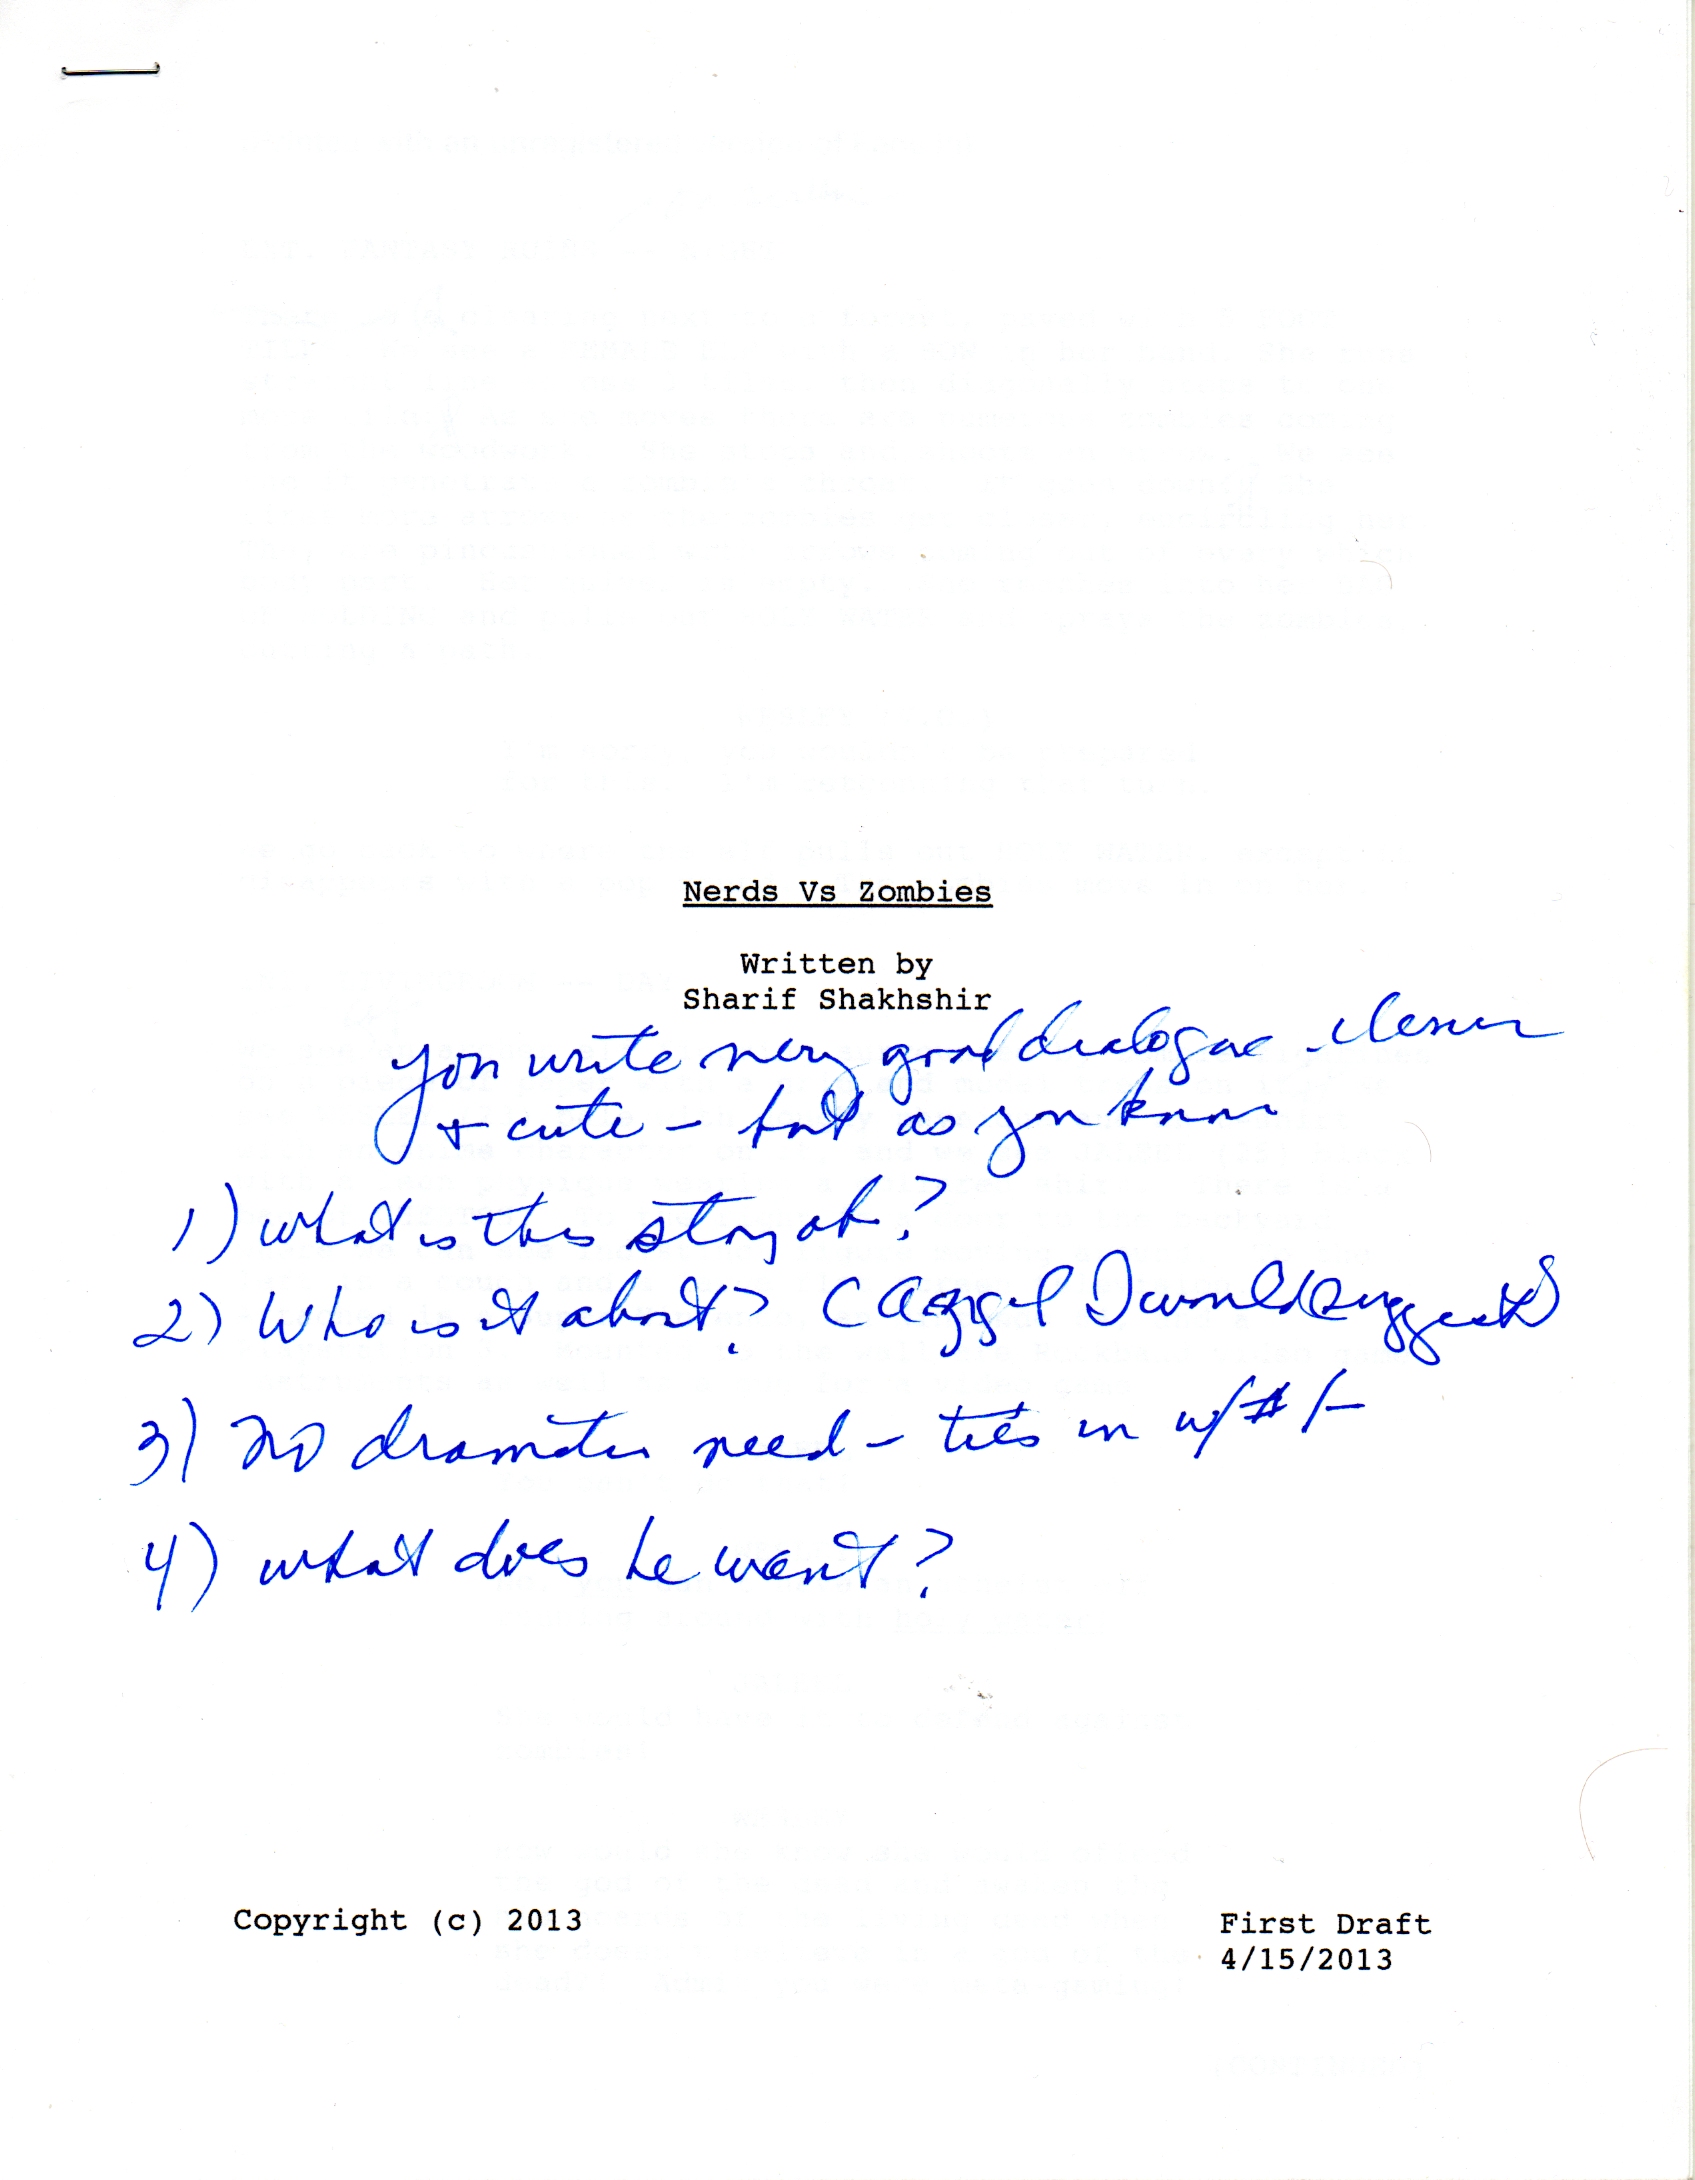 Nerds Vs Zombies
Written by
Sharif Shakhshir
you write very good dialogue clever
+ cute – but as you know
1) what is this story abt?
2) Who is it about? ( I would suggest)
3) no dramatic need – ties in w/ # 1 –
4) what does he want?
Copyright (c) 2013
First Draft
4/15/2013